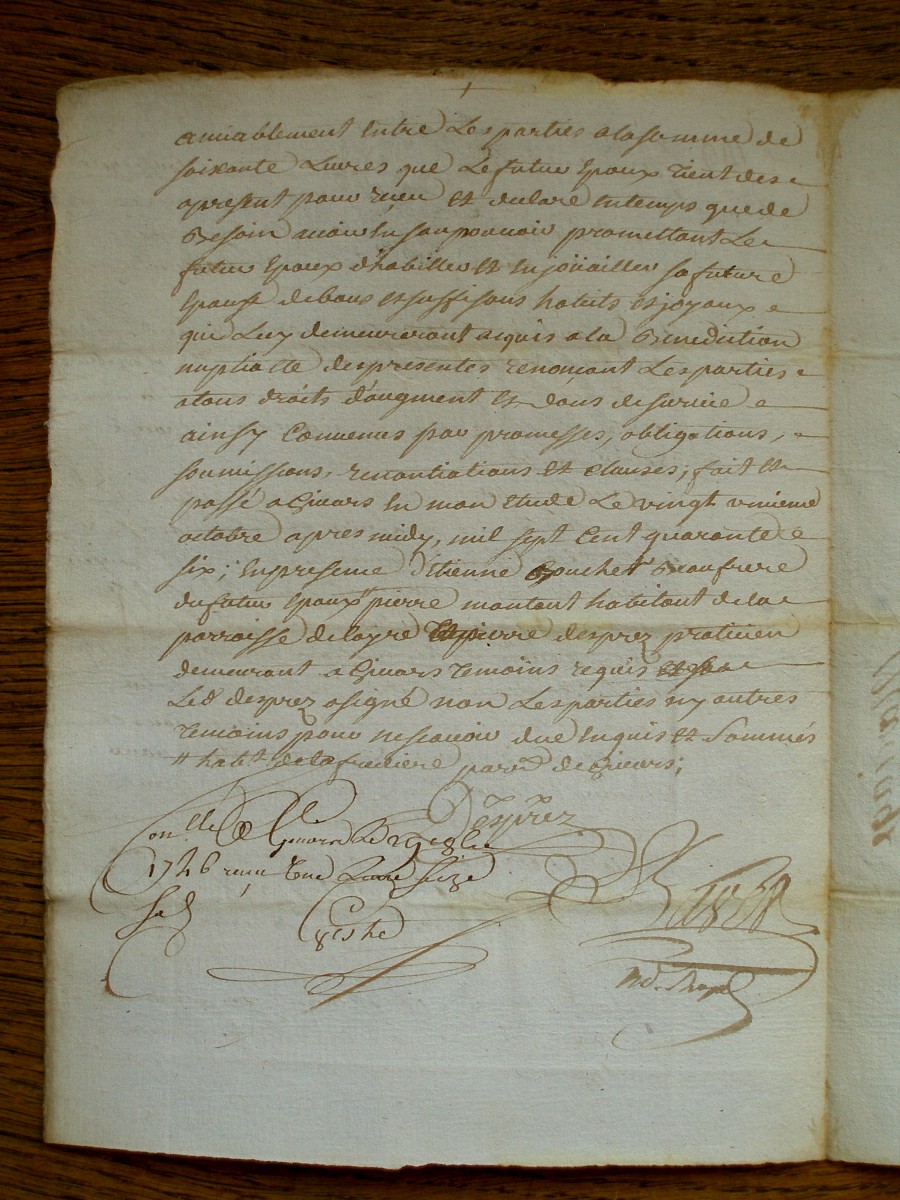 amiablement entre Les parties a la somme de
soixante Livres que Le futur Epoux tient des
apresent pour reçu et declare en temps que de
Besoin avoir en son pouvoir promettant Le
futur Epoux d'habiller et enjoüailler sa future
Epouse de bons et suffisans habits et joyaux
qui Luy demeureront acquis a la Benediction
nuptialle des presentes renonçant Les parties
a tous droits d'augment et dons de survie
ainsy Convenus par promesses, obligations,
soumissions, renontiations et clauses; fait et
passé a Givors en mon etude Le vingt unieme
octobre apres midy, mil sept Cent quarante
six; en presence d'Etienne Bouchet Beaufrere
du futur Epoux pierre montant habitant de la
parroisse de layre et pierre desprez praticien
demeurant a Givors temoins requis
Led desprez a signé non Les parties ny autres
temoins pour ne scavoir de ce enquis et sommés
habt. de la freniere parr. de Givors;
Desprez
onlle a Givors Le
1746 reçu une Livre seize
sols